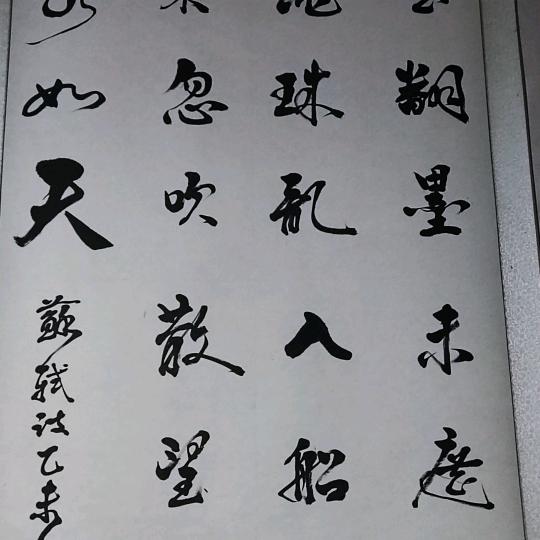 翻墨未遮
珠乱入船
忽吹散望
如天
蘇軾诗乙未